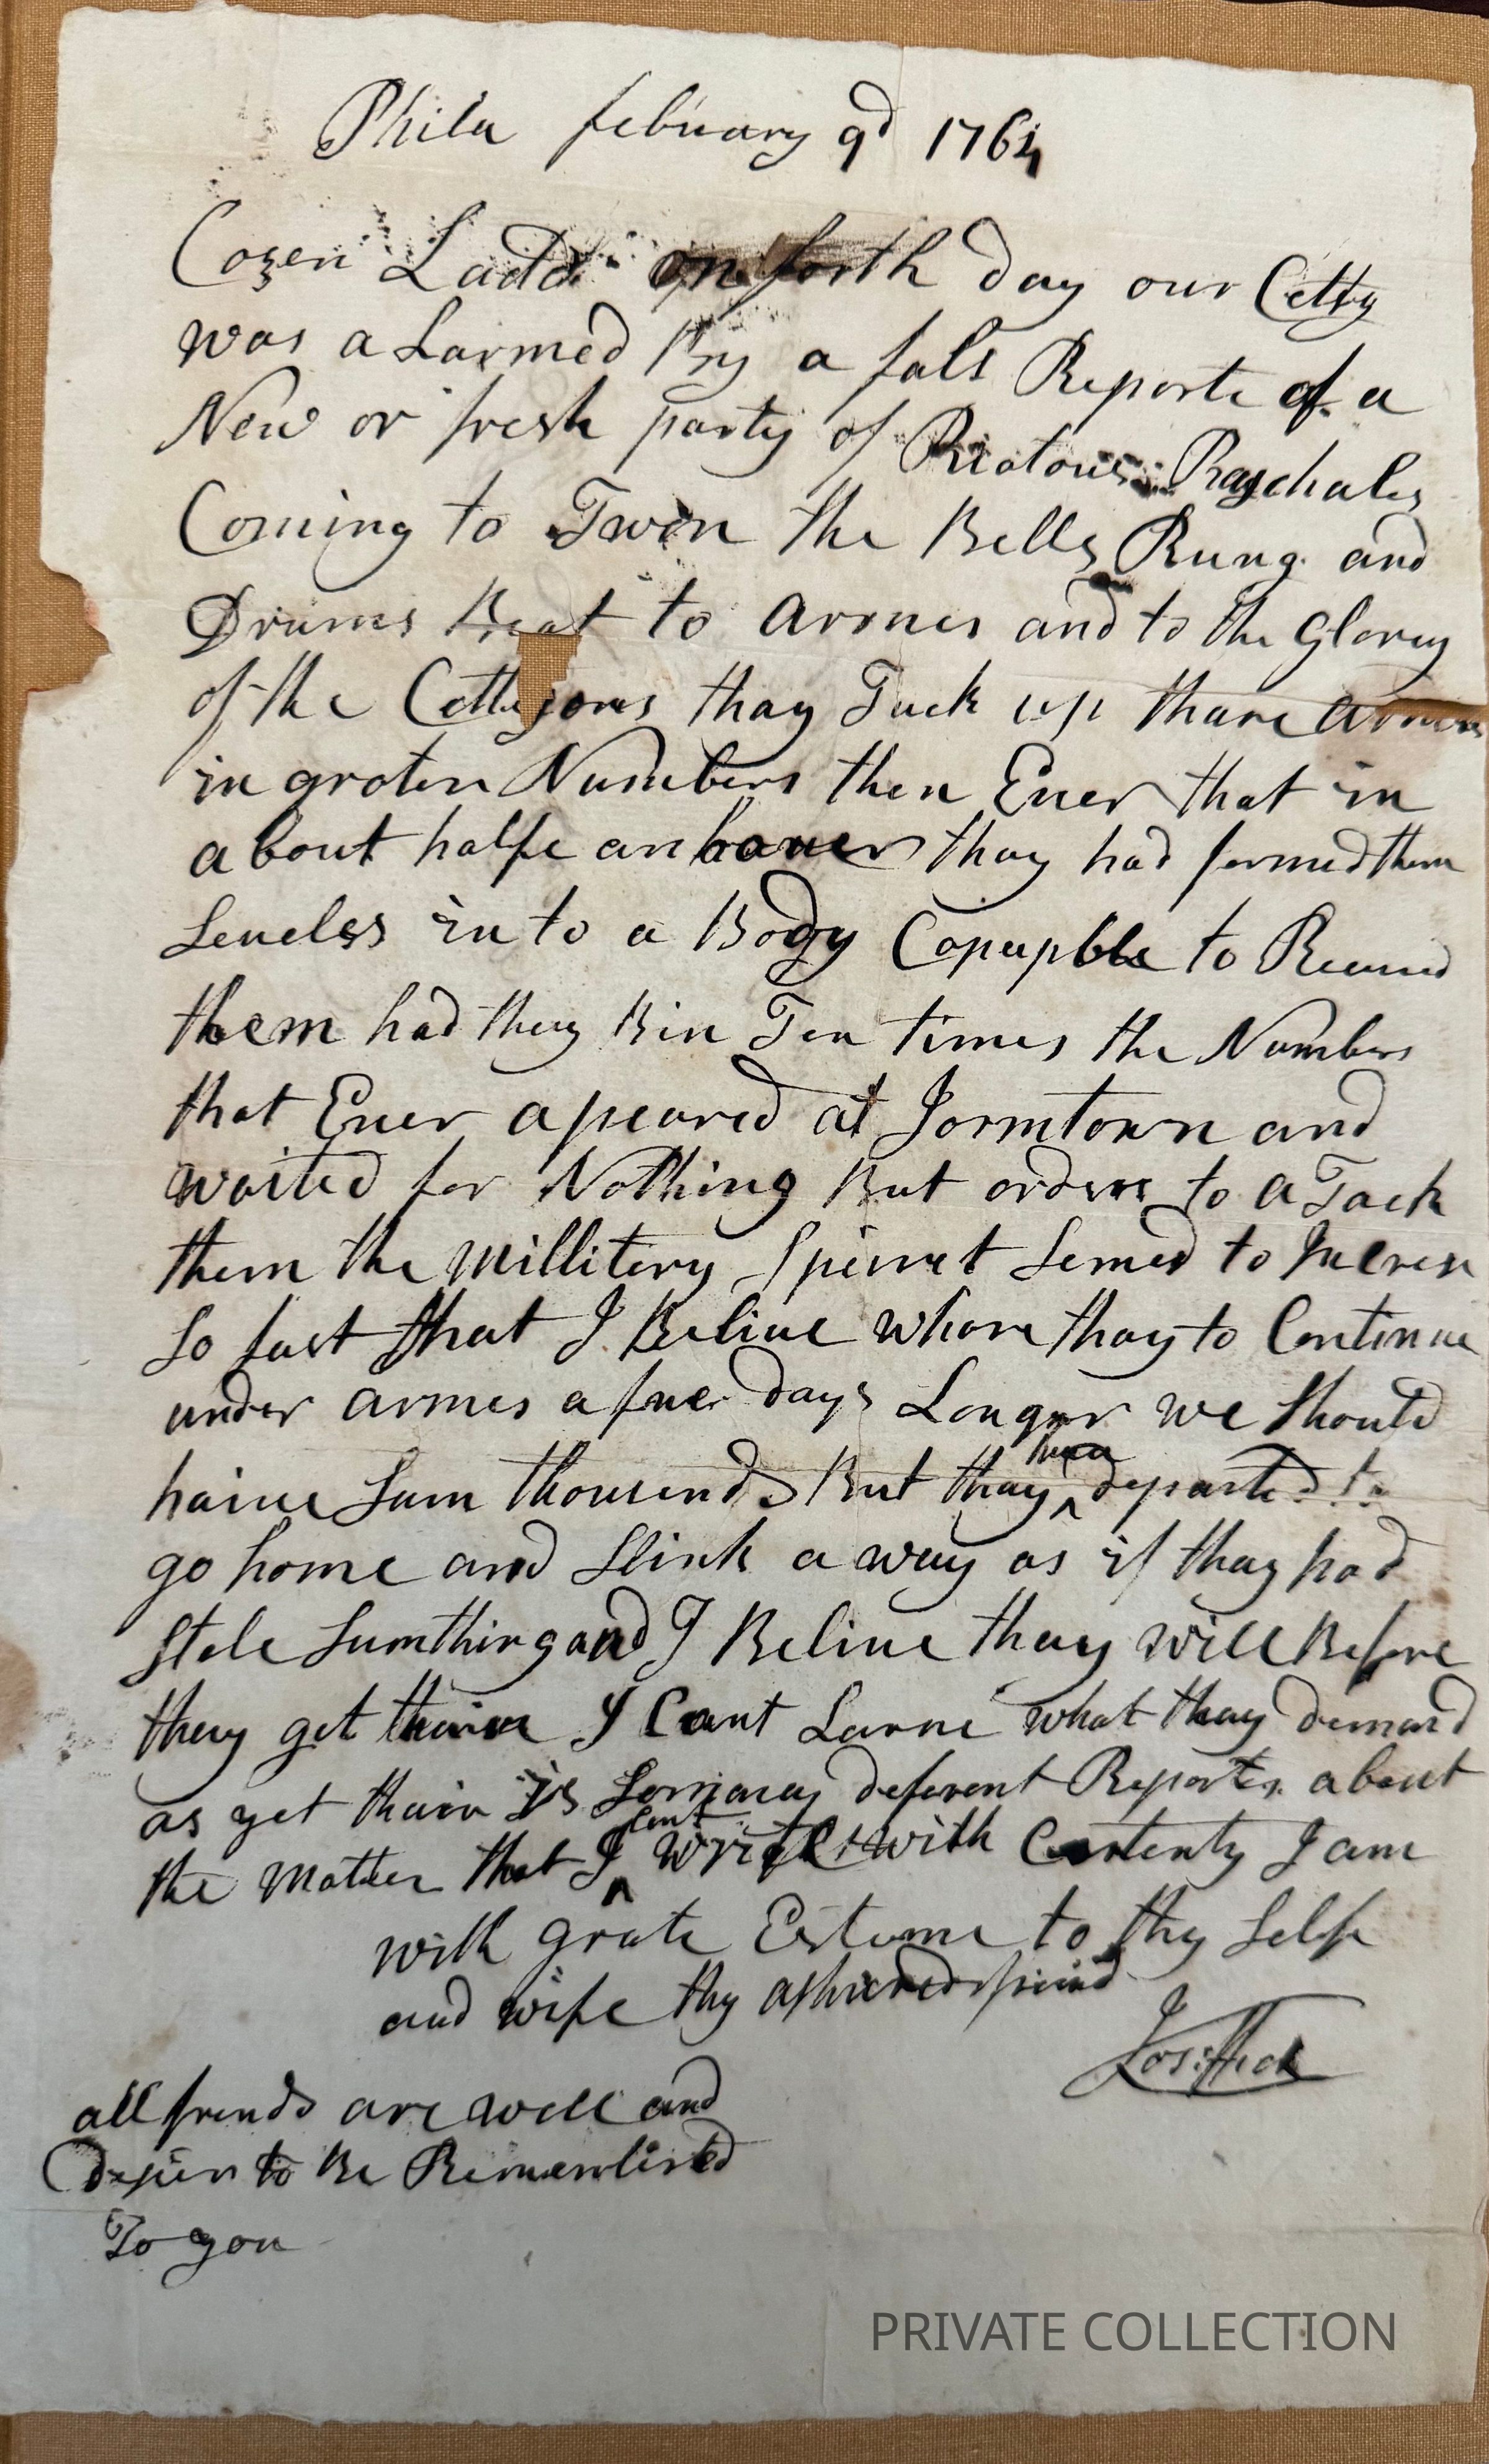 Phila febuary 9d 1764
Cozen Ladd on forth day our Cetty
was a Larmed By a fals Reporte of a
New or fresh party of Riatous Raschales
Coming to Twon the Bells Rung and
Drums Beat to Armes and to the Glorey
of the Cettysons thay Tuck up thare Armes
in grater Numbers then Ever that in
a bout halfe an houer thay had formed them
Sencless in to a Body Capapble to Received
them had they Bin Ten times the Numbers
that Ever apeared at Jarmtown and
waited for Nothing But orders to a Tack
them the Millitery Spirret Semed to Incres
So fast that I Belive whare thay to Continue
under armes a fue days Longer we Should
haive Sum thousends But thay have departed to
go home and Slink a way as if thay had
Stole Sumthing and I Belive thay will Before
they get thair I Cant Larne what thay demand
as yet thair is So maney deferent Reportes about
the Matter that I Cant write with Certenty I am
with grate Esteme to thy Selfe
and wife thy asshured friend
all frends are well and
desier to Be Remembered
To you
PRIVATE COLLECTION